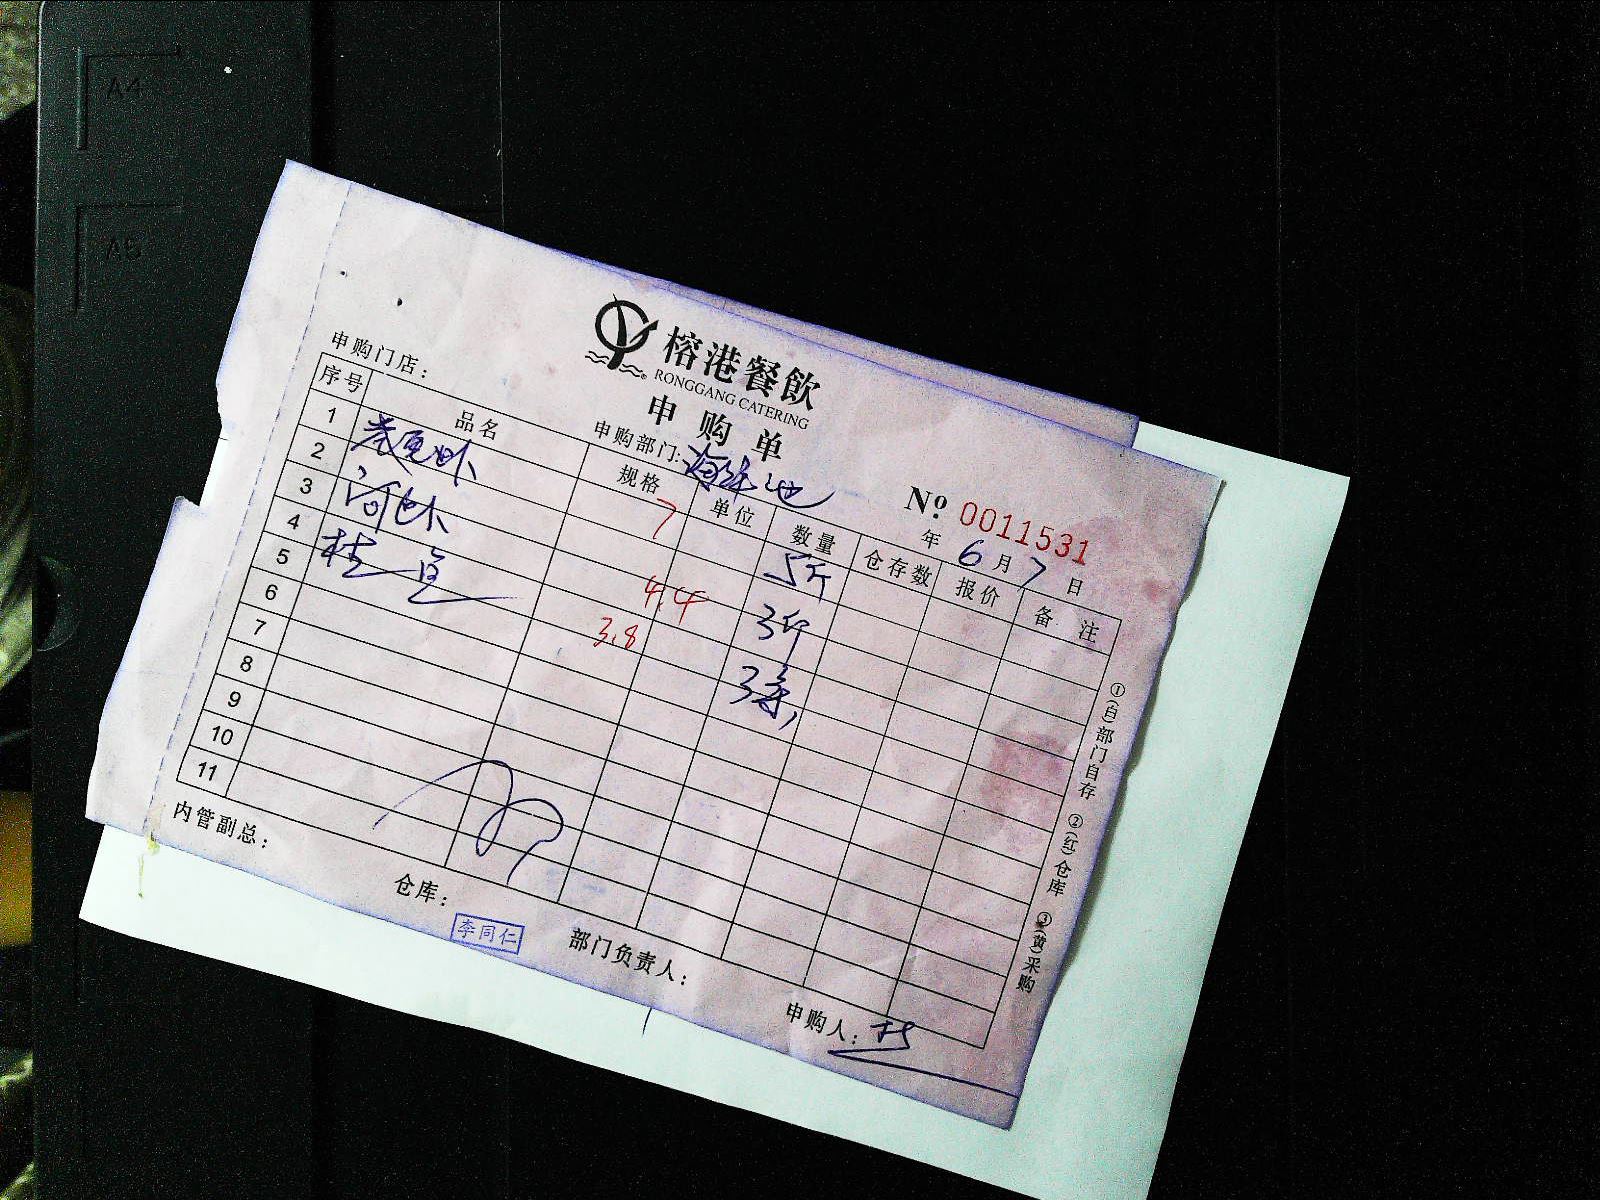 A4
A5
榕港餐飲
RONGGANG CATERING
申购单
申购门店：
申购部门：海鲜池
№ 0011531
年 6 月 7 日
序号 品名 规格 单位 数量 仓存数 报价 备注
1
2
3
4
5
6
7
8
9
10
11
7 5斤
河 4.4 3斤
桂鱼 3.8 3条
①(白)部门自存 ②(红)仓库 ③(黄)采购
内管副总：
仓库：
李同仁
部门负责人：
申购人：